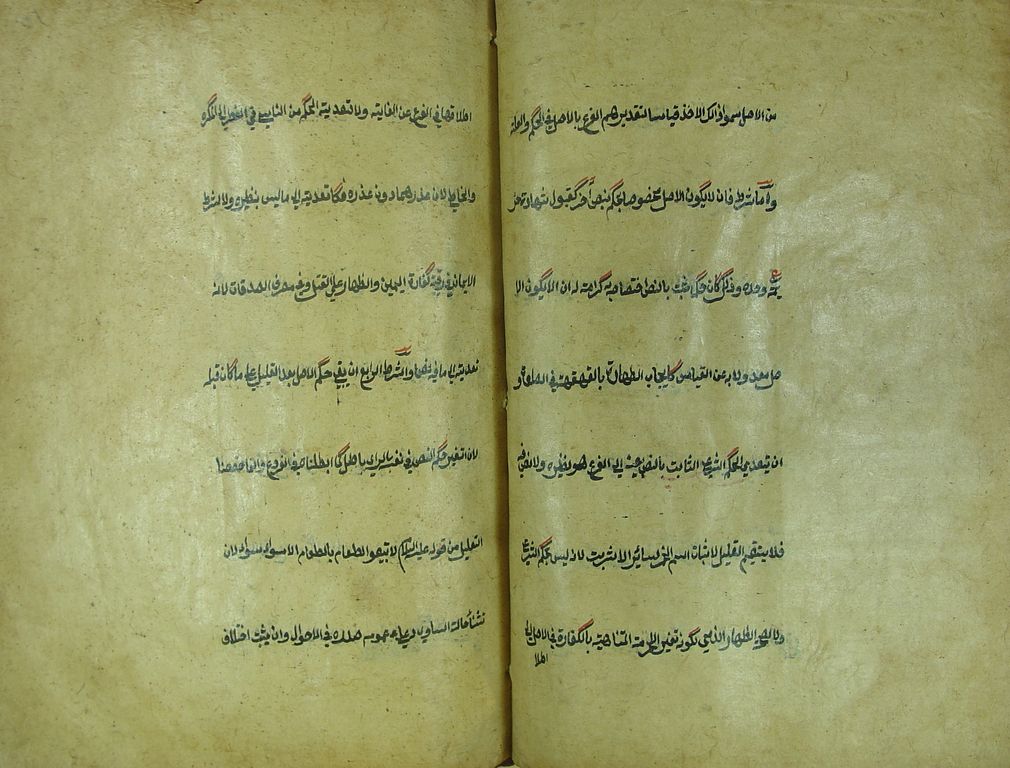 من الاصل سموا ذلك الاخذ قياسا لتقديرهم الفرع بالاصل في الحكم والعلة
واما شرطه فان لا يكون الاصل مخصوصا بحكمه بنص آخر كقبول شهادة خز
يمة وحده وذلك كان حكما ثبت بالنص اختصاصه به كرامة له ان لا يكون الا
صل معدولا به عن القياس كايجاب الطهارة بالقهقهة في الصلوة و
ان يتعدي الحكم الشرعي الثابت بالنص بعينه الي الفرع هو نظيره ولا نص فيه
فلا يستقيم التعليل لاثبات اسم الخمر لسائر الاشربة لانه ليس بحكم الشرعي
ولا لصحة الظهار الذمي لكونه تغيير الحرمة المتناهية بالكفارة في الاصل الي
اطلا
اطلاقها في الفرع عن الغاية ولا تعدية الحكم من الناسي في الفطر الي المكره
والخاطي لان عذرهما دون عذره فكان تعديته الي ما ليس بنظيره ولا لشرط
الايمان في رقبة كفارة اليمين والظهار علي القتل وفي مصرف الصدقات لانه
تعديته الي ما فيه نص والشرط الرابع ان يبقي حكم الاصل بعد التعليل علي ما كان قبله
لان تغيير حكم النص في نفسه بالراي باطل كما ابطلناه في الفروع وانما خصصنا
القليل من قوله عليه السلام لا تبيعوا الطعام بالطعام الا سواء بسواء لان
استثناء حالة التساوي دل علي عموم صدره في الاحوال ولن يثبت اختلاف